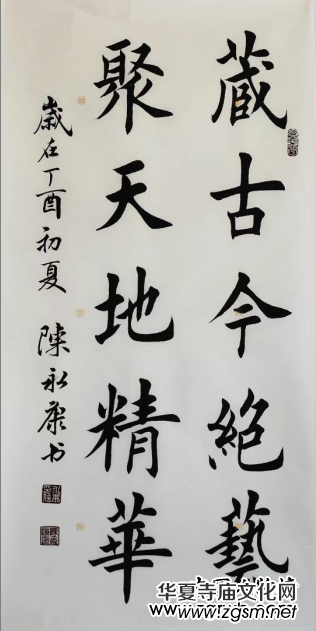 藏古今絕藝
聚天地精華
歲在丁酉初夏 陳永康书
华夏寺庙文化网
www.zgsm.net